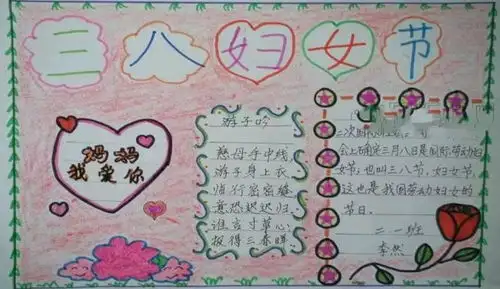 三八妇女节
妈妈
我爱你
游子吟
慈母手中线
游子身上衣
临行密密缝
意恐迟迟归
谁言寸草心
报得三春晖
二次国际
会上确定三月八日是国际劳动妇
女节，也叫三八节，妇女节，
这也是我国劳动妇女的
节日。
二一班
李然